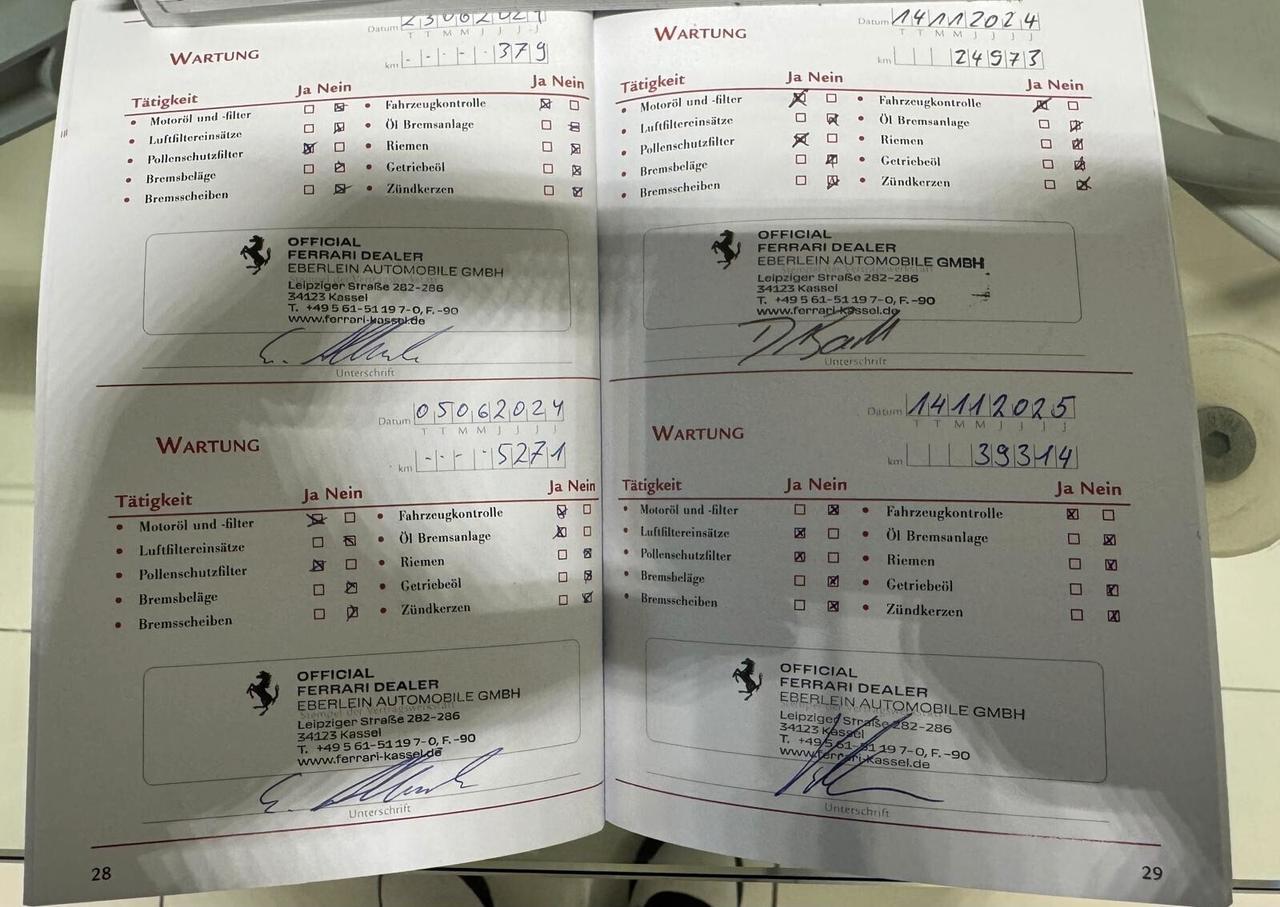 WARTUNG
Datum 23062021
T T M M J J J J
km - - - - 379
Tätigkeit Ja Nein Ja Nein
• Motoröl und -filter ☐ ☒ • Fahrzeugkontrolle ☒ ☐
• Luftfiltereinsätze ☐ ☒ • Öl Bremsanlage ☐ ☒
• Pollenschutzfilter ☒ ☐ • Riemen ☐ ☒
• Bremsbeläge ☐ ☒ • Getriebeöl ☐ ☒
• Bremsscheiben ☐ ☒ • Zündkerzen ☐ ☒
OFFICIAL
FERRARI DEALER
EBERLEIN AUTOMOBILE GMBH
Leipziger Straße 282-286
34123 Kassel
T. +49 5 61-51 19 7-0, F. -90
www.ferrari-kassel.de
Unterschrift
WARTUNG
Datum 05062024
T T M M J J J J
km - - - - 5271
Tätigkeit Ja Nein Ja Nein
• Motoröl und -filter ☒ ☐ • Fahrzeugkontrolle ☒ ☐
• Luftfiltereinsätze ☐ ☒ • Öl Bremsanlage ☒ ☐
• Pollenschutzfilter ☒ ☐ • Riemen ☐ ☒
• Bremsbeläge ☐ ☒ • Getriebeöl ☐ ☒
• Bremsscheiben ☐ ☒ • Zündkerzen ☐ ☒
OFFICIAL
FERRARI DEALER
EBERLEIN AUTOMOBILE GMBH
Stempel der Vertragswerkstatt
Leipziger Straße 282-286
34123 Kassel
T. +49 5 61-51 19 7-0, F. -90
www.ferrari-kassel.de
Unterschrift
28
WARTUNG
Datum 14112024
T T M M J J J J
km 24973
Tätigkeit Ja Nein Ja Nein
• Motoröl und -filter ☒ ☐ • Fahrzeugkontrolle ☒ ☐
• Luftfiltereinsätze ☐ ☒ • Öl Bremsanlage ☐ ☒
• Pollenschutzfilter ☒ ☐ • Riemen ☐ ☒
• Bremsbeläge ☐ ☒ • Getriebeöl ☐ ☒
• Bremsscheiben ☐ ☒ • Zündkerzen ☐ ☒
OFFICIAL
FERRARI DEALER
EBERLEIN AUTOMOBILE GMBH
Stempel der Vertragswerkstatt
Leipziger Straße 282-286
34123 Kassel
T. +49 5 61-51 19 7-0, F. -90
www.ferrari-kassel.de
Unterschrift
WARTUNG
Datum 14112025
T T M M J J J J
km 39314
Tätigkeit Ja Nein Ja Nein
• Motoröl und -filter ☐ ☒ • Fahrzeugkontrolle ☒ ☐
• Luftfiltereinsätze ☒ ☐ • Öl Bremsanlage ☐ ☒
• Pollenschutzfilter ☒ ☐ • Riemen ☐ ☒
• Bremsbeläge ☐ ☒ • Getriebeöl ☐ ☒
• Bremsscheiben ☐ ☒ • Zündkerzen ☐ ☒
OFFICIAL
FERRARI DEALER
EBERLEIN AUTOMOBILE GMBH
Leipziger Straße 282-286
34123 Kassel
T. +49 5 61-51 19 7-0, F. -90
www.ferrari-kassel.de
Unterschrift
29